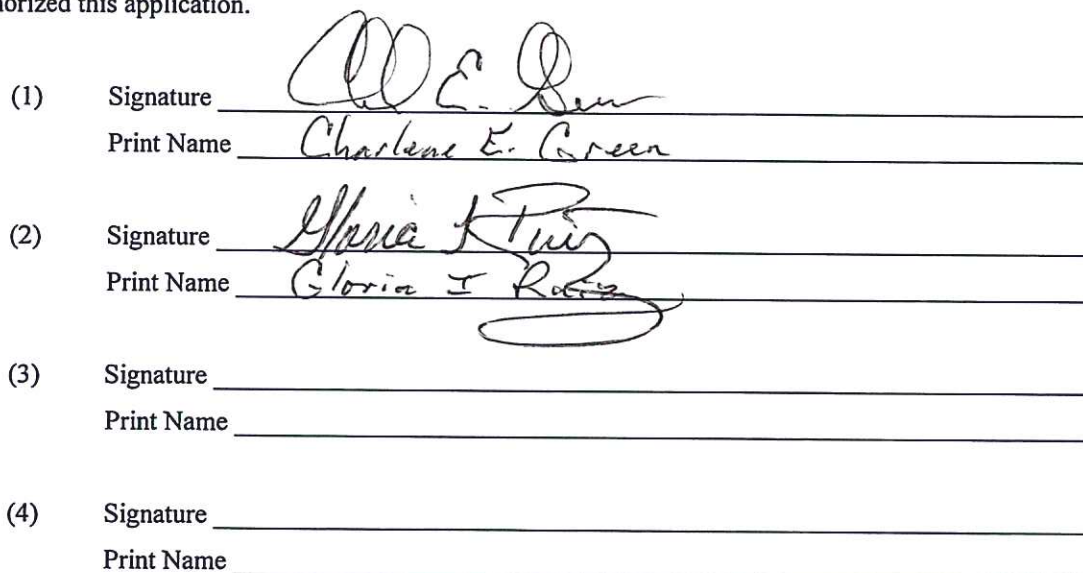 orized this application.
(1) Signature
Print Name Charlene E. Green
(2) Signature Gloria I Ruiz
Print Name Gloria I Ruiz
(3) Signature
Print Name
(4) Signature
Print Name